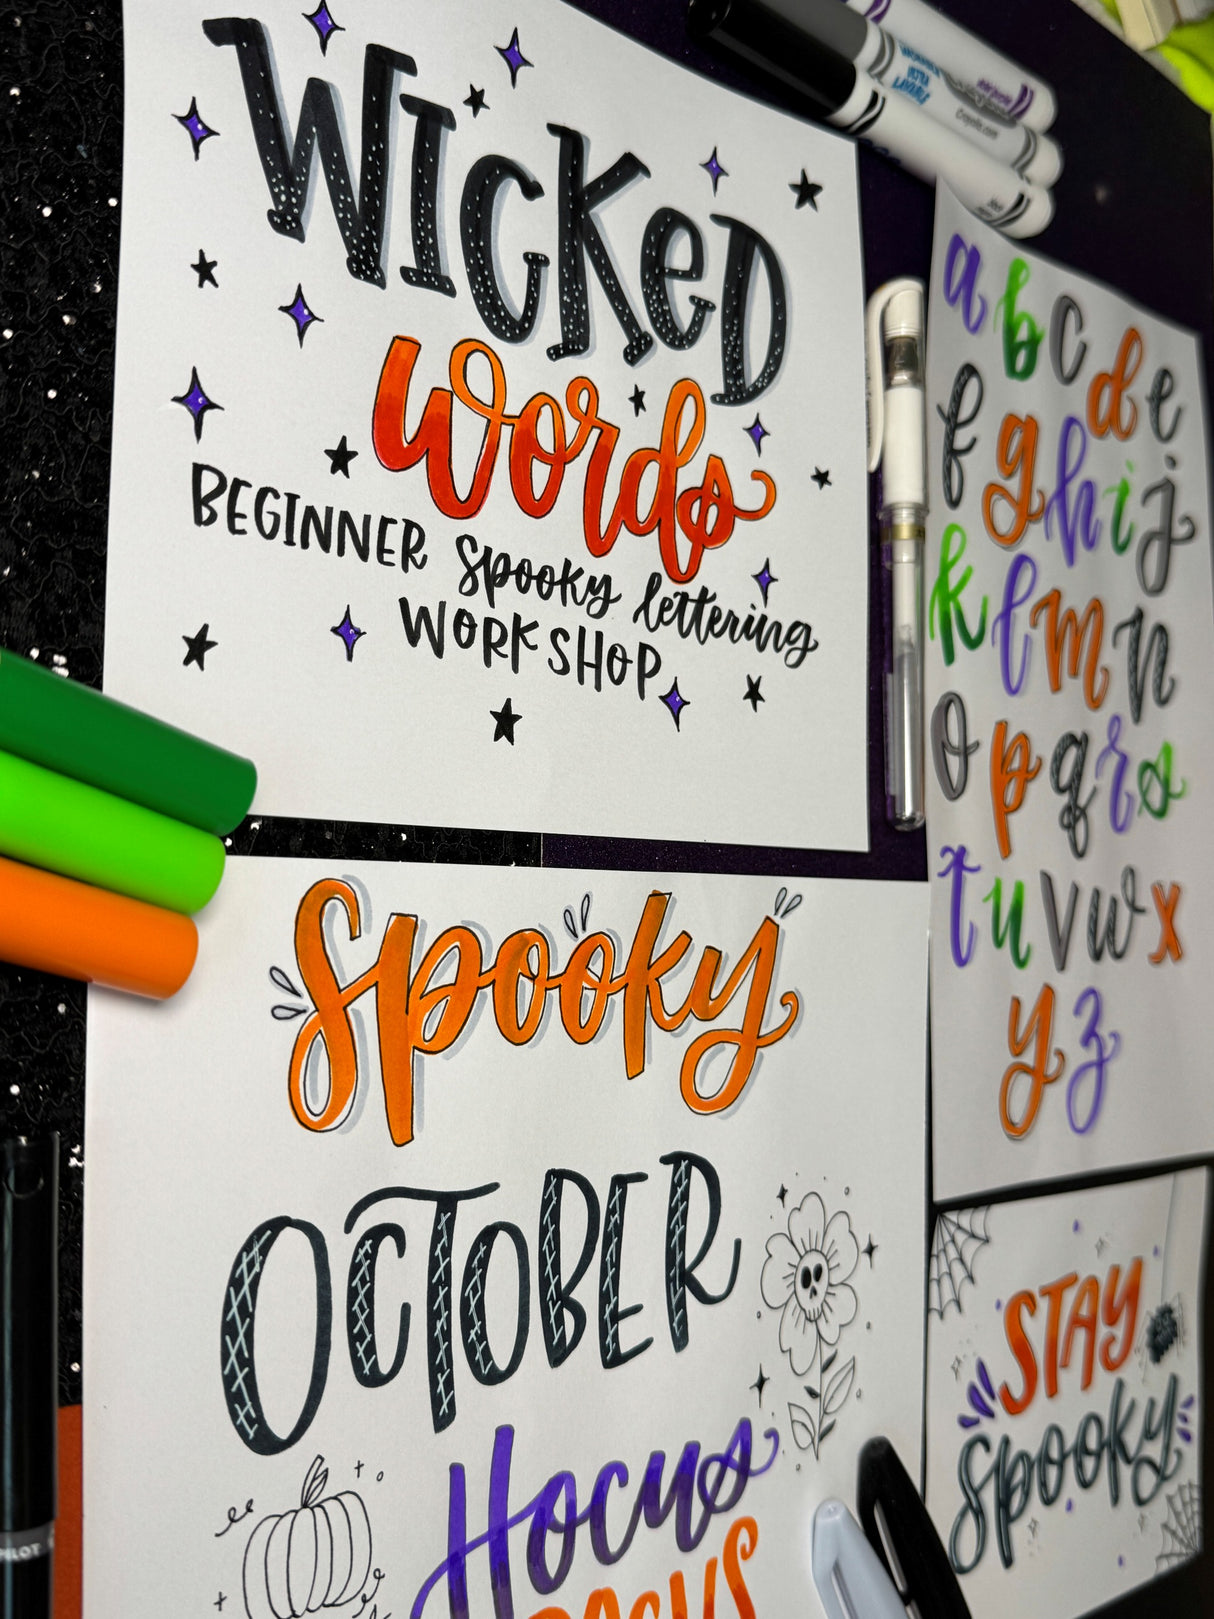 WICKeD
words
BEGINNER spooky lettering
WORKSHOP
spooky
OCTOBER
Hocus
POCUS
a b c d e
f g h i j
k l m n
o p q r s
t u v w x
y z
STAY
spooky
Crayola.com
PILOT